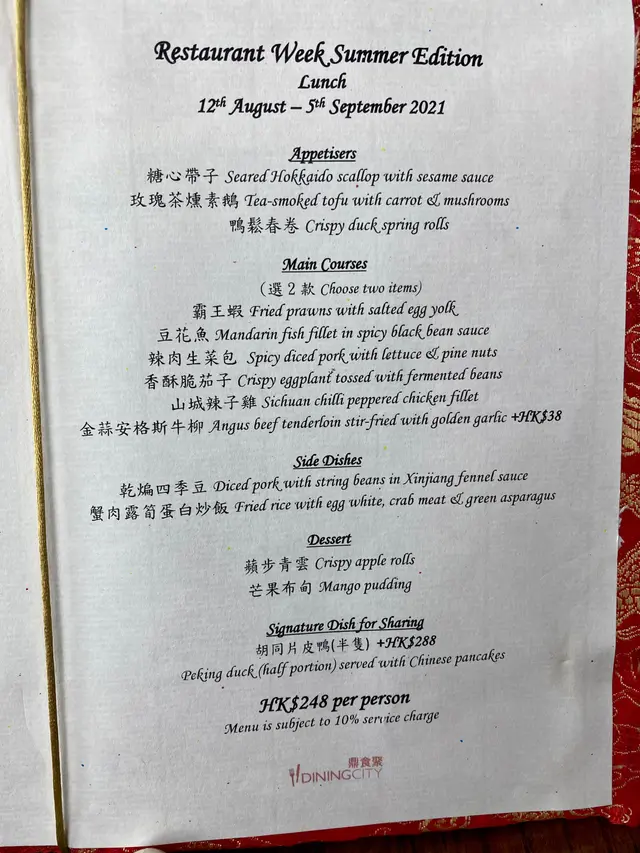 Restaurant Week Summer Edition
Lunch
12th August – 5th September 2021
Appetisers
糖心帶子 Seared Hokkaido scallop with sesame sauce
玫瑰茶燻素鵝 Tea-smoked tofu with carrot & mushrooms
鴨鬆春卷 Crispy duck spring rolls
Main Courses
(選 2 款 Choose two items)
霸王蝦 Fried prawns with salted egg yolk
豆花魚 Mandarin fish fillet in spicy black bean sauce
辣肉生菜包 Spicy diced pork with lettuce & pine nuts
香酥脆茄子 Crispy eggplant tossed with fermented beans
山城辣子雞 Sichuan chilli peppered chicken fillet
金蒜安格斯牛柳 Angus beef tenderloin stir-fried with golden garlic +HK$38
Side Dishes
乾煸四季豆 Diced pork with string beans in Xinjiang fennel sauce
蟹肉露筍蛋白炒飯 Fried rice with egg white, crab meat & green asparagus
Dessert
蘋步青雲 Crispy apple rolls
芒果布甸 Mango pudding
Signature Dish for Sharing
胡同片皮鴨(半隻) +HK$288
Peking duck (half portion) served with Chinese pancakes
HK$248 per person
Menu is subject to 10% service charge
鼎食聚
DININGCITY